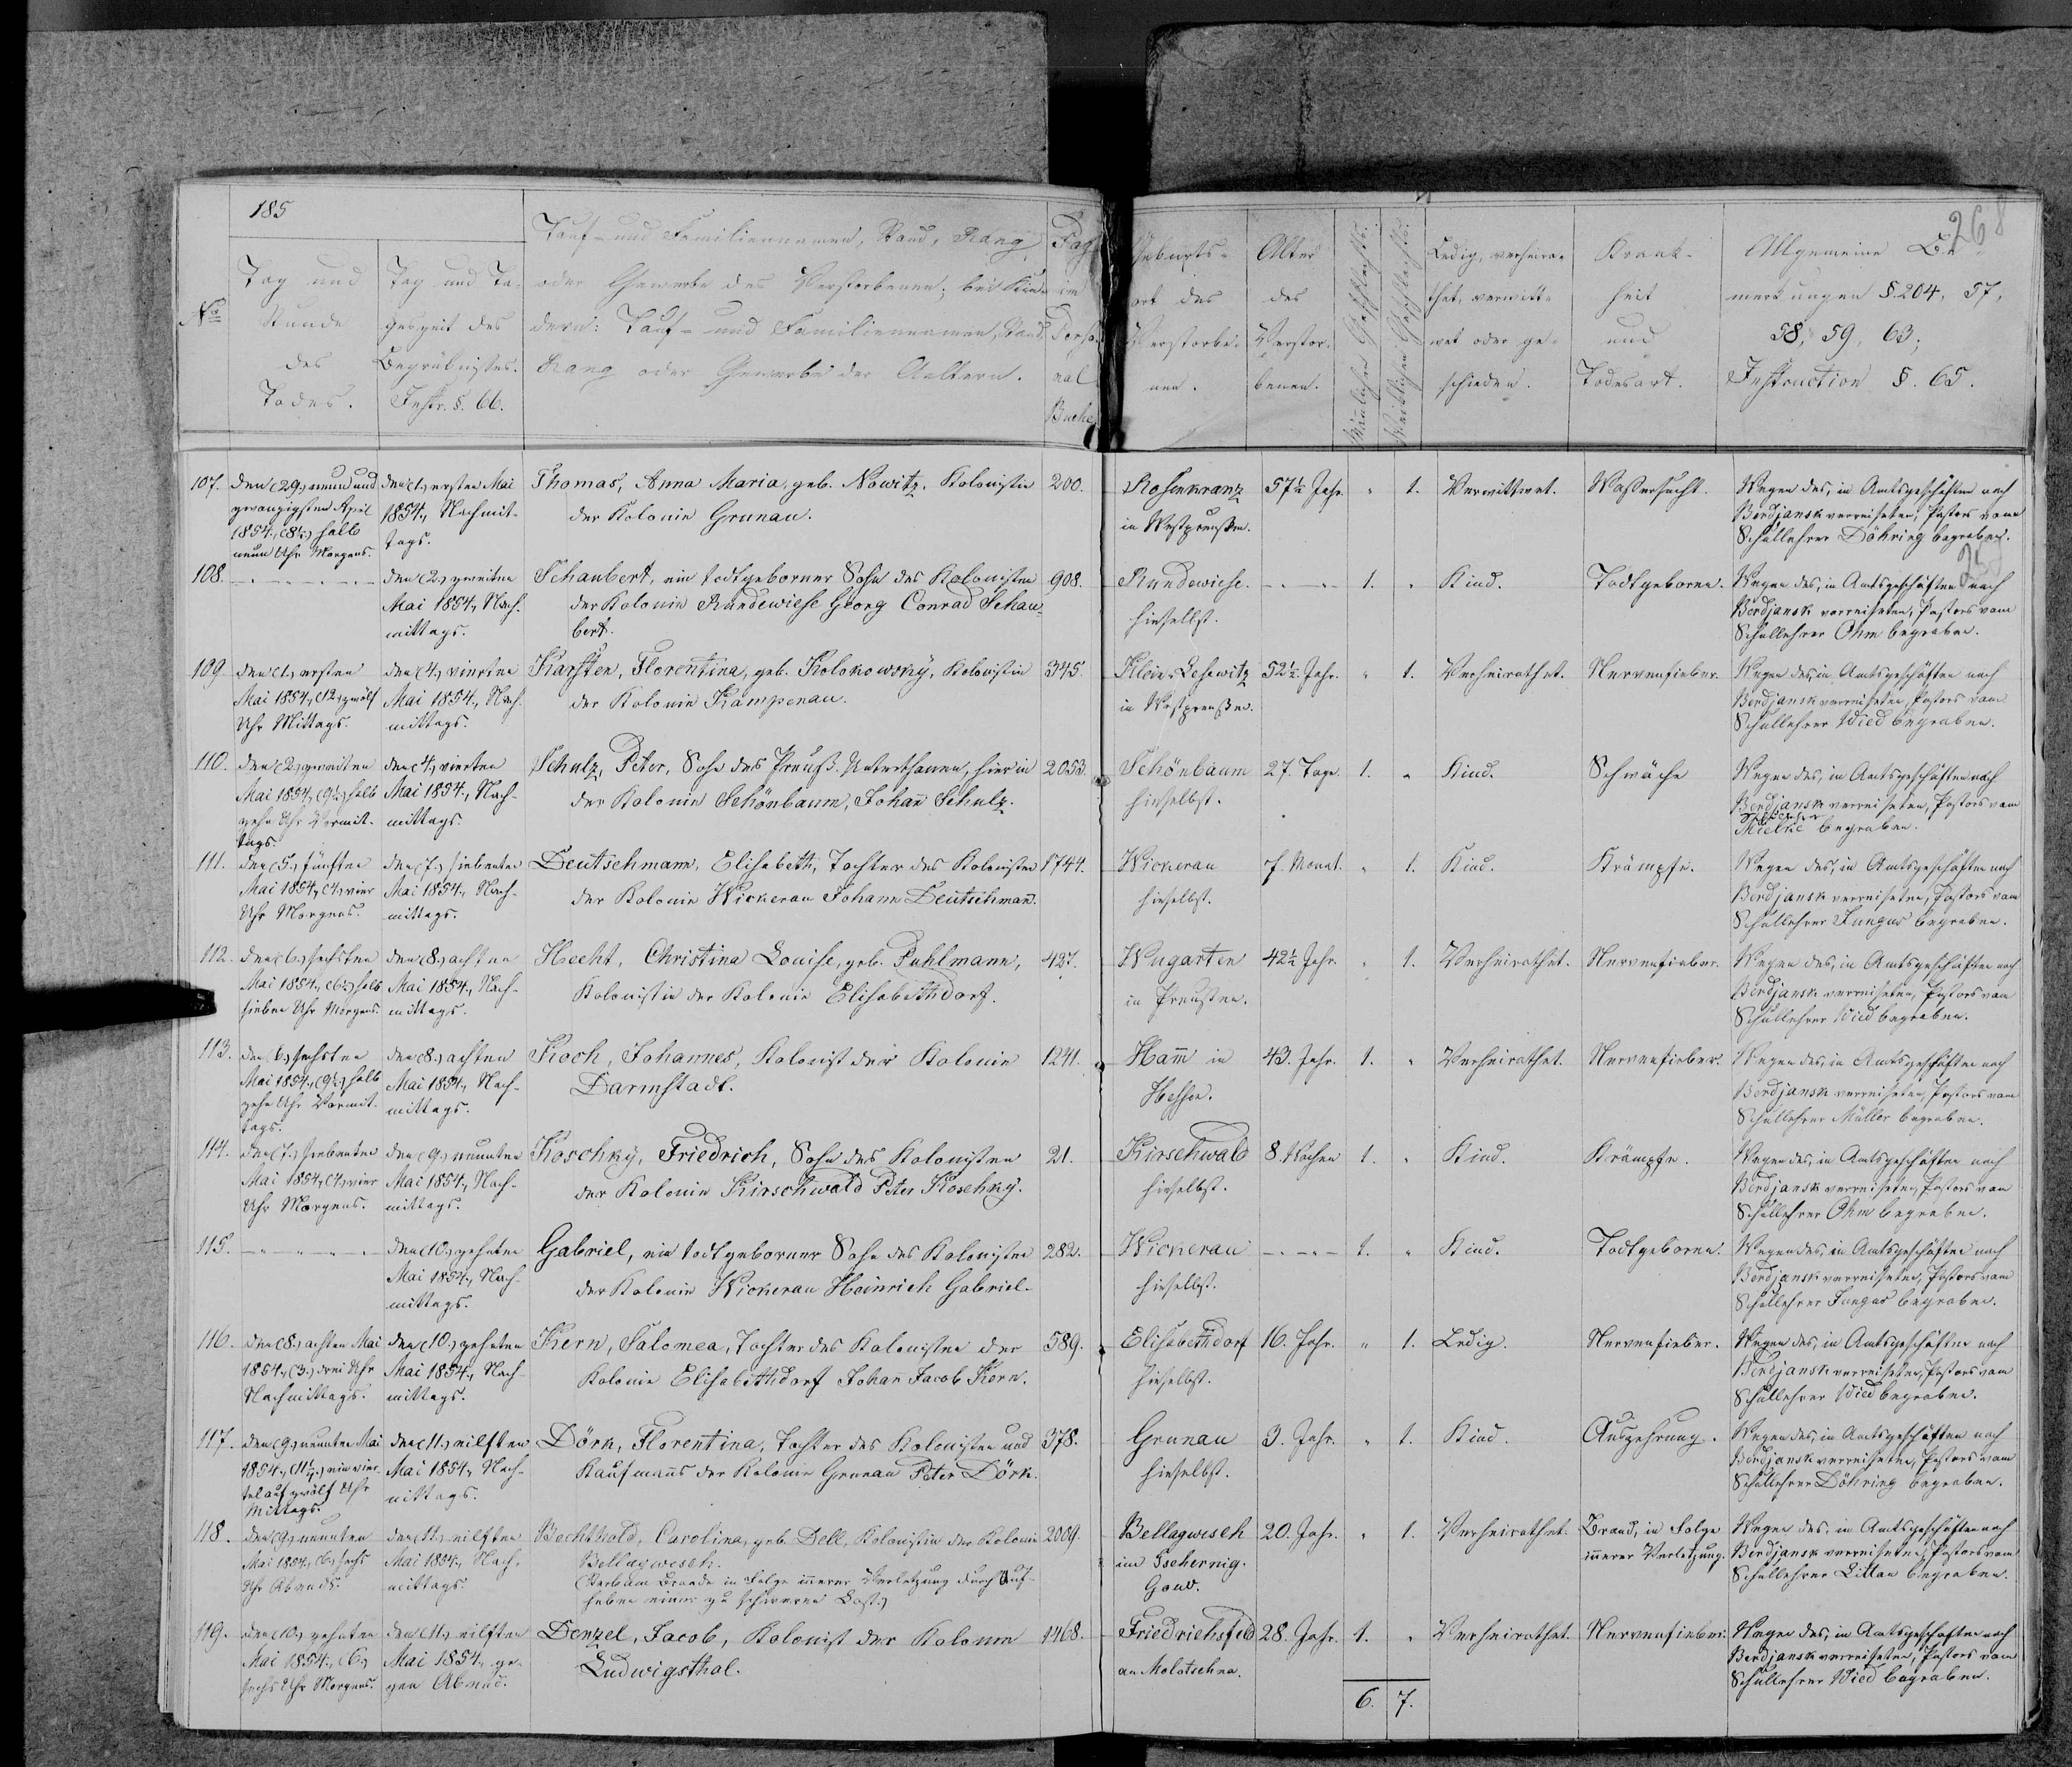 185
268
Tauf- und Familiennamen, Stand, Rang
oder Gewerbe des Verstorbenen; bei Kin-
dern: Tauf- und Familiennamen, Stand,
Rang oder Gewerbe der Aeltern.
Pag.
im
Perso-
nal
Buche
No
Tag und
Stunde
des
Todes.
Tag und Ta-
geszeit des
Begräbnisses.
Instr. §. 66.
Geburts-
ort des
Verstorbe-
nen.
Alter
des
Verstor-
benen.
Männlichen Geschlechts.
Weiblichen Geschlechts.
Ledig, verheira-
thet, verwitt-
wet oder ge-
schieden.
Krank-
heit
und
Todesart.
Allgemeine Be-
merkungen §. 204, 57,
58, 59, 63;
Instruction §. 65.
107.
den (29.) neun und
zwanzigsten April
1854., (8½) halb
neun Uhr Morgens.
den (1.) ersten Mai
1854., Nachmit-
tags.
Thomas, Anna Maria, geb. Nowitz, Kolonistin
der Kolonie Grunau.
200.
Rosenkranz
in Westpreußen.
57½ Jahr.
" 1.
Verwittwet.
Wassersucht.
Wegen des, in Amtsgeschäften nach
Berdjansk verreiseten, Pastors vom
Schullehrer Döhring begraben.
108.
den (2.) zweiten
Mai 1854., Nach-
mittags.
Schaubert, ein todtgeborner Sohn des Kolonisten
der Kolonie Rundewiese Georg Conrad Schau-
bert.
908.
Rundewiese
hieselbst.
1. "
Kind.
Todtgeboren.
Wegen des, in Amtsgeschäften nach
Berdjansk verreiseten, Pastors vom
Schullehrer Ohm begraben.
109.
den (1.) ersten
Mai 1854., (12.) zwölf
Uhr Mittags.
den (4.) vierten
Mai 1854., Nach-
mittags.
Karsten, Florentina, geb. Kolokowsky, Kolonistin
der Kolonie Kampenau.
345.
Klein-Lesewitz
in Westpreußen.
52½ Jahr.
" 1.
Verheirathet.
Nervenfieber.
Wegen des, in Amtsgeschäften nach
Berdjansk verreiseten, Pastors vom
Schullehrer Wied begraben.
110.
den (2.) zweiten
Mai 1854., (9½) halb
zehn Uhr Vormit-
tags.
den (4.) vierten
Mai 1854., Nach-
mittags.
Schulz, Peter, Sohn des Preuß. Unterthanen, hier in
der Kolonie Schönbaum, Johan̄ Schulz.
2053.
Schönbaum
hieselbst.
27. Tage.
1. "
Kind.
Schwäche
Wegen des, in Amtsgeschäften nach
Berdjansk verreiseten, Pastors vom
Mielke begraben.
111.
den (5.) fünften
Mai 1854., (4.) vier
Uhr Morgens.
den (7.) siebenten
Mai 1854., Nach-
mittags.
Deutschmann, Elisabeth, Tochter des Kolonisten
der Kolonie Wickerau Johann Deutschman̄.
1744.
Wickerau
hieselbst.
7. Monat.
" 1.
Kind.
Krämpfe.
Wegen des, in Amtsgeschäften nach
Berdjansk verreiseten, Pastors vom
Schullehrer Jungas begraben.
112.
den (6.) sechsten
Mai 1854., (6½) halb
sieben Uhr Morgens.
den (8.) achten
Mai 1854., Nach-
mittags.
Hecht, Christina Louise, geb. Puhlmann,
Kolonistin der Kolonie Elisabethdorf.
427.
Wugarten
in Preußen.
42½ Jahr.
" 1.
Verheirathet.
Nervenfieber.
Wegen des, in Amtsgeschäften nach
Berdjansk verreiseten, Pastors vom
Schullehrer Wied begraben.
113.
den (6.) sechsten
Mai 1854., (9½) halb
zehn Uhr Vormit-
tags.
den (8.) achten
Mai 1854., Nach-
mittags.
Koch, Johannes, Kolonist der Kolonie
Darmstadt.
1241.
Ham̄ in
Hessen.
43. Jahr.
1. "
Verheirathet.
Nervenfieber.
Wegen des, in Amtsgeschäften nach
Berdjansk verreiseten, Pastors vom
Schullehrer Müller begraben.
114.
den (7.) siebenten
Mai 1854., (4.) vier
Uhr Morgens.
den (9.) neunten
Mai 1854., Nach-
mittags.
Koschky, Friedrich, Sohn des Kolonisten
der Kolonie Kirschwald Peter Koschky.
21.
Kirschwald
hieselbst.
8. Wochen
1. "
Kind.
Krämpfe.
Wegen des, in Amtsgeschäften nach
Berdjansk verreiseten, Pastors vom
Schullehrer Ohm begraben.
115.
den (10.) zehnten
Mai 1854., Nach-
mittags.
Gabriel, ein todtgeborner Sohn des Kolonisten
der Kolonie Wickerau Heinrich Gabriel.
282.
Wickerau
hieselbst.
1. "
Kind.
Todtgeboren.
Wegen des, in Amtsgeschäften nach
Berdjansk verreiseten, Pastors vom
Schullehrer Jungas begraben.
116.
den (8.) achten Mai
1854., (3.) drei Uhr
Nachmittags.
den (10.) zehnten
Mai 1854., Nach-
mittags.
Kern, Salomea, Tochter des Kolonisten der
Kolonie Elisabethdorf Johan Jacob Kern.
589.
Elisabethdorf
hieselbst.
16. Jahr.
" 1.
Ledig.
Nervenfieber.
Wegen des, in Amtsgeschäften nach
Berdjansk verreiseten, Pastors vom
Schullehrer Wied begraben.
117.
den (9.) neunten Mai
1854., (11¼) ein vier-
tel auf zwölf Uhr
Mittags.
den (11.) eilften
Mai 1854., Nach-
mittags.
Dörk, Florentina, Tochter des Kolonisten und
Kaufman̄s der Kolonie Grunau Peter Dörk.
378.
Grunau
hieselbst.
3. Jahr.
" 1.
Kind.
Auszehrung.
Wegen des, in Amtsgeschäften nach
Berdjansk verreiseten, Pastors vom
Schullehrer Döhring begraben.
118.
den (9.) neunten
Mai 1854., (6.) sechs
Uhr Abends.
den (11.) eilften
Mai 1854., Nach-
mittags.
Bechthold, Carolina, geb. Dell, Kolonistin der Kolonie
Bellagwesch.
(Starb am Brande in Folge in̄erer Verletzung durch Auf-
heben einer zu schweren Last.)
2009.
Bellagwesch
im Tschernig.
Gouv.
20. Jahr.
" 1.
Verheirathet.
Brand, in Folge
in̄erer Verletzung.
Wegen des, in Amtsgeschäften nach
Berdjansk verreiseten, Pastors vom
Schullehrer Littau begraben.
119.
den (10.) zehnten
Mai 1854., (6.)
sechs Uhr Morgens.
den (11.) eilften
Mai 1854., ge-
gen Abend.
Denzel, Jacob, Kolonist der Kolonie
Ludwigsthal.
1468.
Friedrichsfeld
an Molotschna.
28. Jahr.
1. "
Verheirathet.
Nervenfieber.
Wegen des, in Amtsgeschäften nach
Berdjansk verreiseten, Pastors vom
Schullehrer Wied begraben.
6. 7.